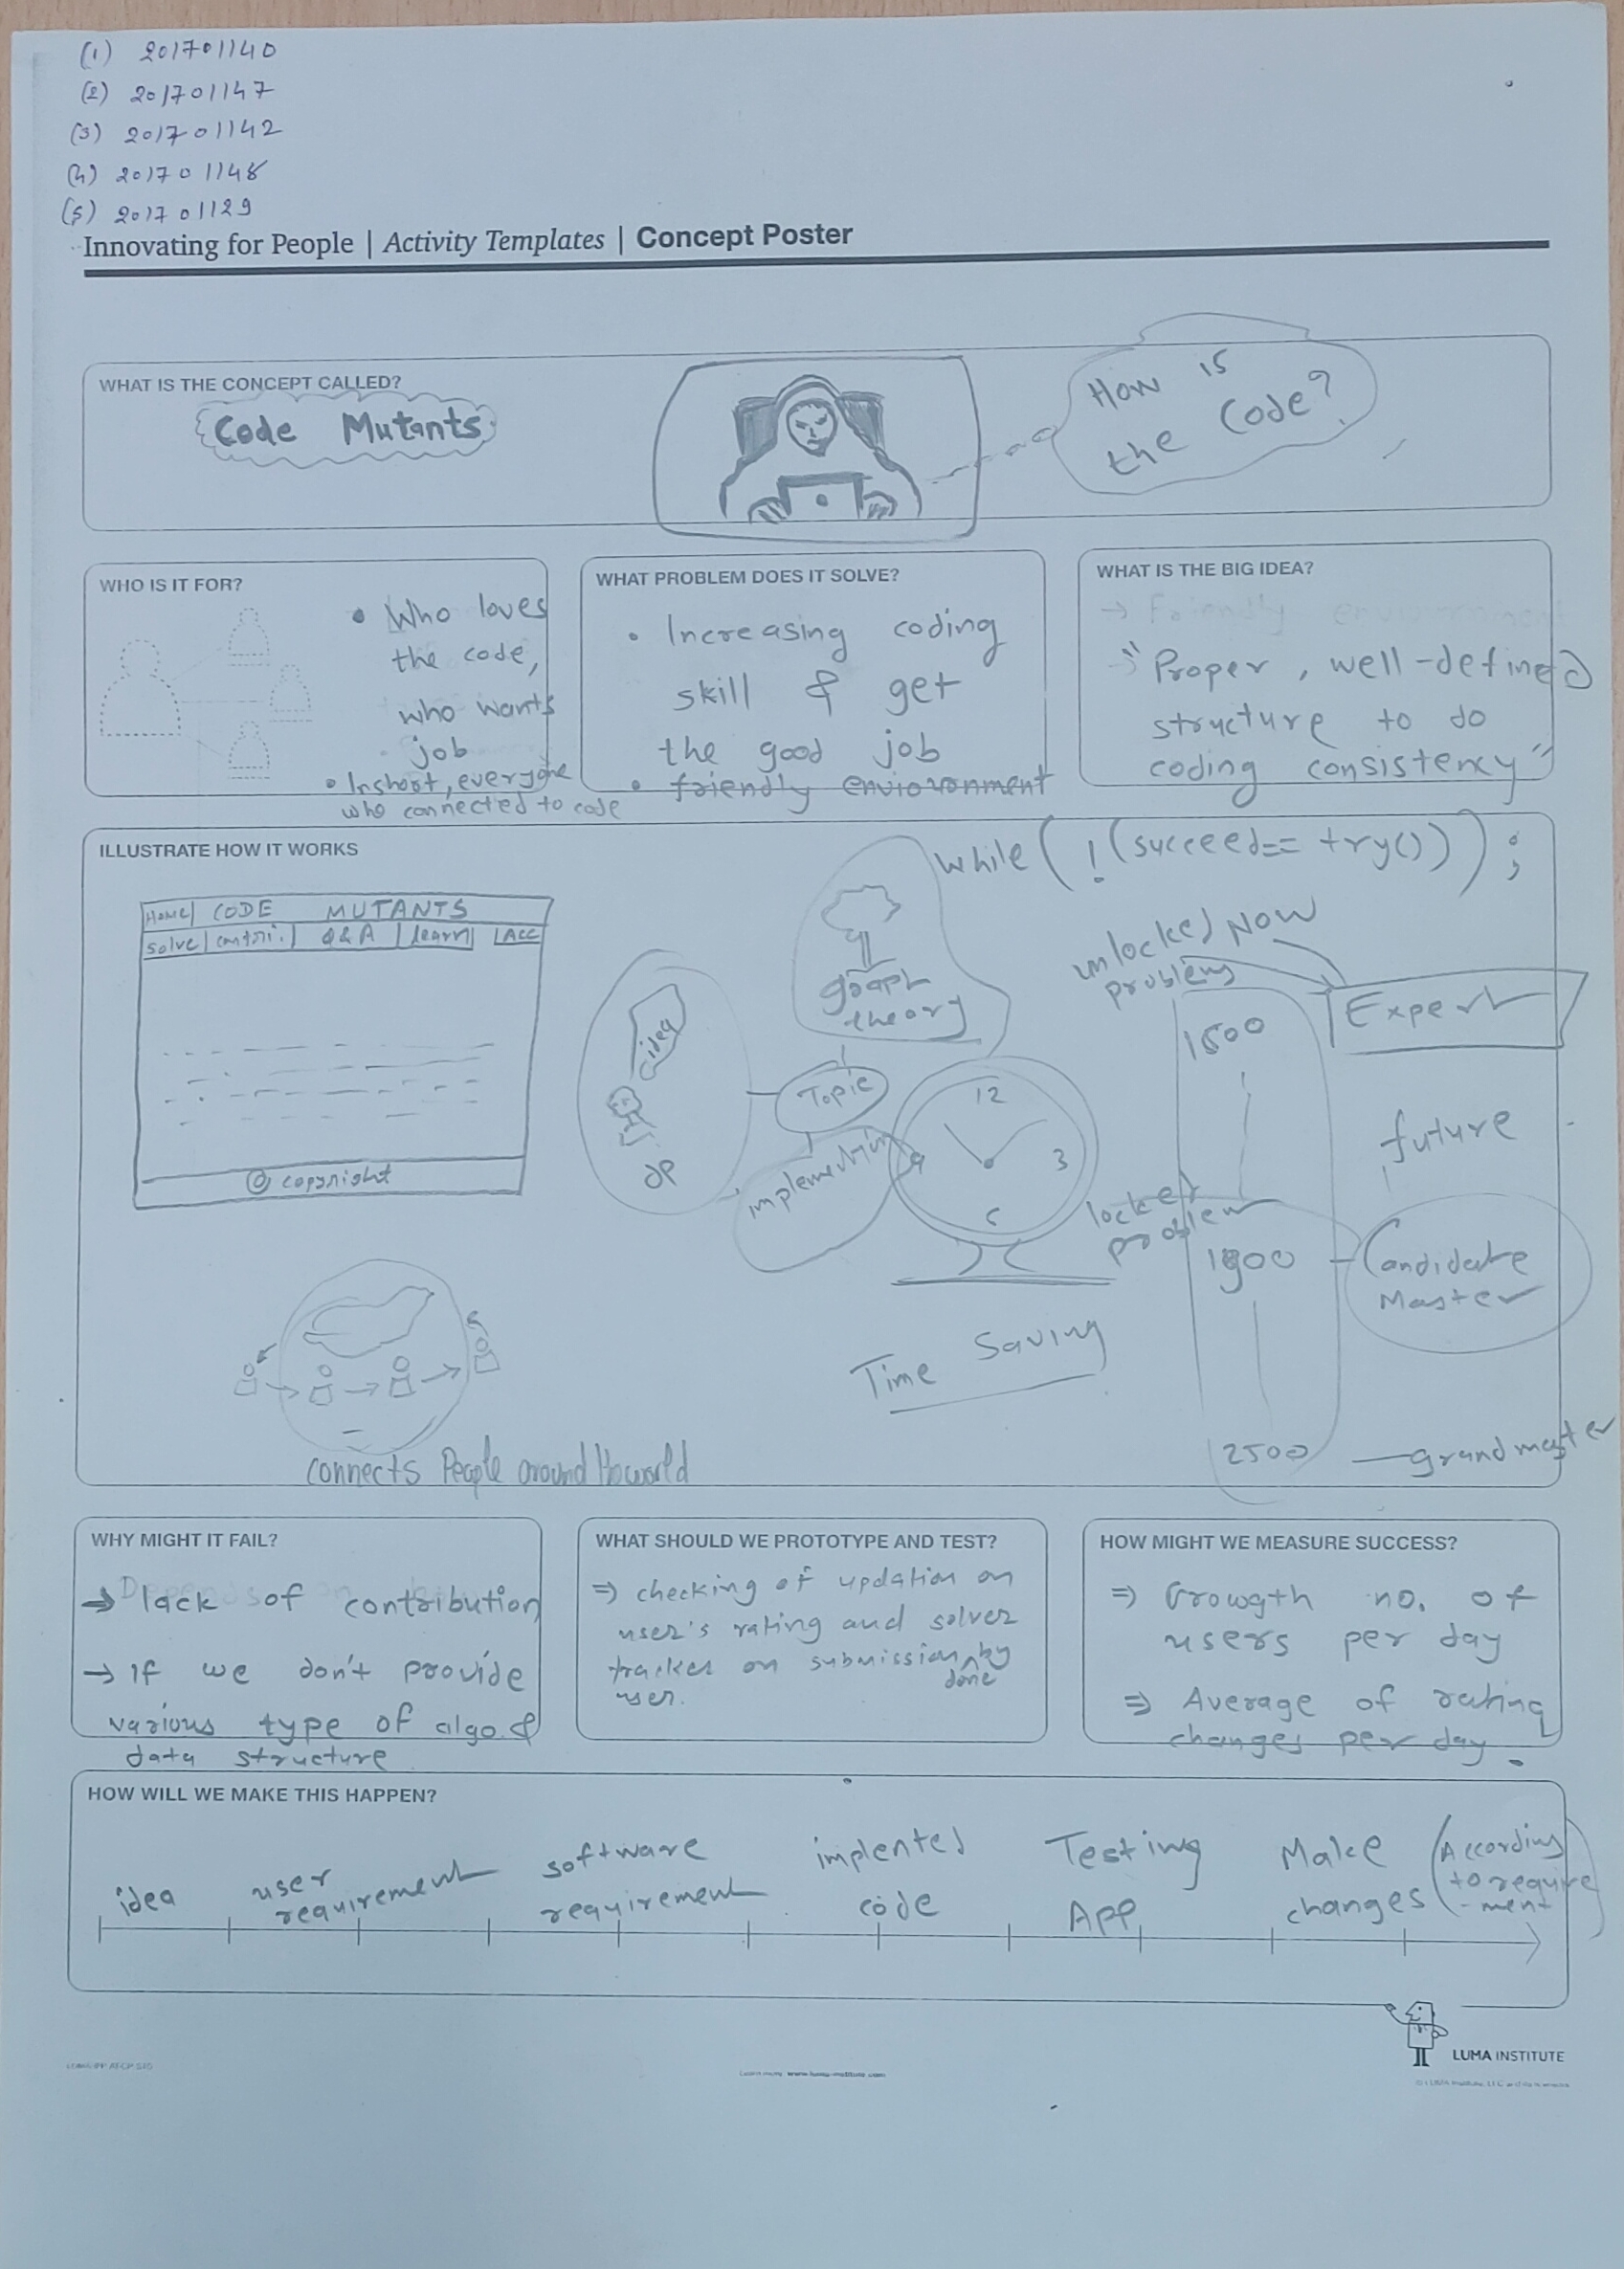 (1) 201701140
(2) 201701147
(3) 201701142
(4) 201701148
(5) 201701129
Innovating for People | Activity Templates | Concept Poster
WHAT IS THE CONCEPT CALLED?
Code Mutants
How is
the Code?
WHO IS IT FOR?
• Who loves
the code,
who wants
job
• Inshort, everyone
who connected to code
WHAT PROBLEM DOES IT SOLVE?
• Increasing coding
skill & get
the good job
• friendly enviovonment
WHAT IS THE BIG IDEA?
→ Friendly
"Proper, well-defined
structure to do
coding consistency"
ILLUSTRATE HOW IT WORKS
while(!(succeed== try()));
HOME CODE MUTANTS
solve contri. Q&A learn ACC
© copyright
idea
DP
graph
theory
Topic
implementation
12
3
6
9
Time Saving
unlocked NOW
problems
1600
Expert
future
locked
problem
1900
Candidate
Master
2500 — grand master
connects People around the world
WHY MIGHT IT FAIL?
→ lack of contribution
→ If we don't provide
various type of algo. &
data structure
WHAT SHOULD WE PROTOTYPE AND TEST?
⇒ checking of updation on
user's rating and solver
tracker on submission done by
user.
HOW MIGHT WE MEASURE SUCCESS?
⇒ Growgth no. of
users per day
⇒ Average of rating
changes per day.
HOW WILL WE MAKE THIS HAPPEN?
idea
user
requirement
software
requirement
implented
code
Testing
App
Make
changes
(According
to require
-ment)
LUMA INSTITUTE